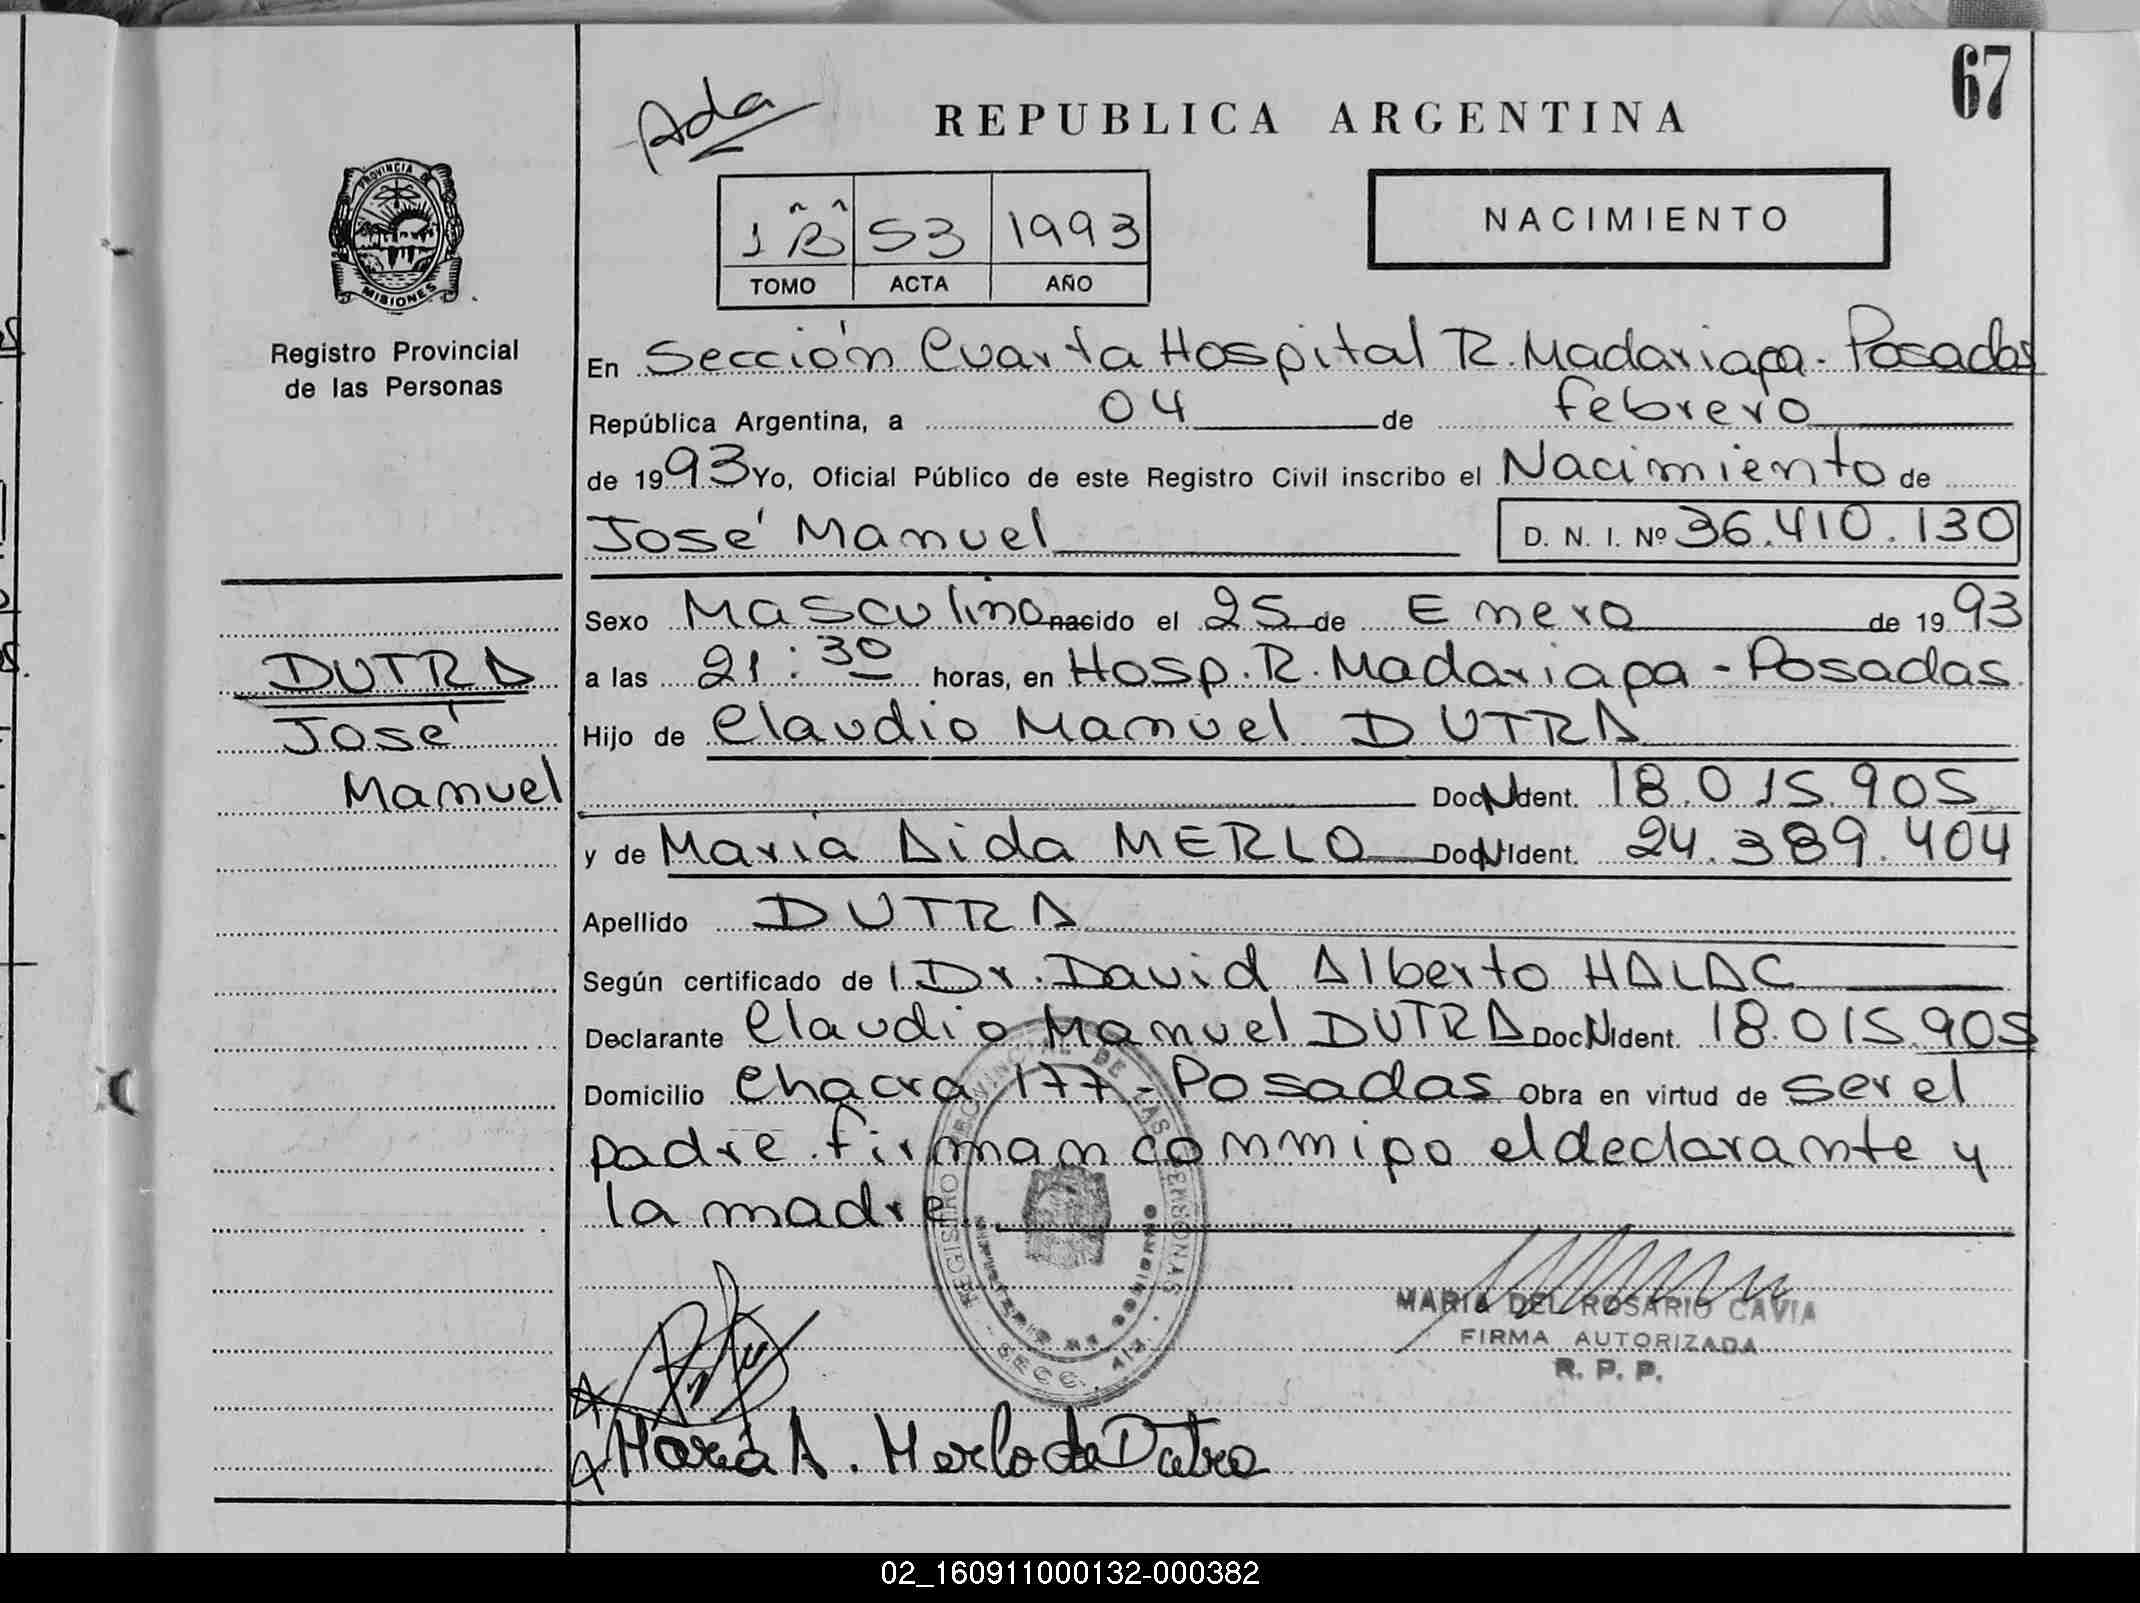 67
Ada
REPUBLICA ARGENTINA
NACIMIENTO
1 B 53 1993
TOMO ACTA AÑO
PROVINCIA DE
MISIONES
Registro Provincial
de las Personas
En Sección Cuarta Hospital R. Madariaga - Posadas
República Argentina, a 04 de febrero
de 1993 Yo, Oficial Público de este Registro Civil inscribo el Nacimiento de
José Manuel D. N. I. Nº 36.410.130
Sexo Masculino nacido el 25 de Enero de 1993
a las 21:30 horas, en Hosp. R. Madariaga - Posadas
Hijo de Claudio Manuel DUTRA
Doc N Ident. 18.015.905
y de María Aida MERLO Doc N Ident. 24.389.404
Apellido DUTRA
Según certificado de Dr. David Alberto HALAC
Declarante Claudio Manuel DUTRA Doc N Ident. 18.015.905
Domicilio Chacra 177 - Posadas Obra en virtud de ser el
padre. firman conmigo el declarante y
la madre
DUTRA
José
Manuel
REGISTRO PROVINCIAL DE LAS PERSONAS
MINISTERIO DE GOBIERNO
SECC. 4ta.
MARIA DEL ROSARIO CAVIA
FIRMA AUTORIZADA
R. P. P.
María A. Merlo de Dutra
02_160911000132-000382